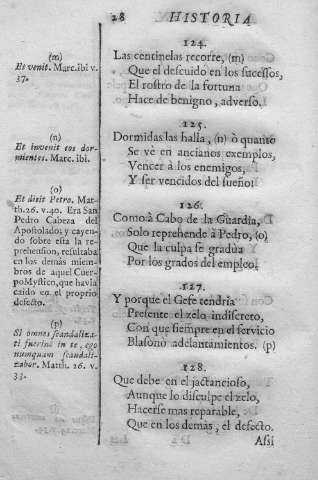 28 HISTORIA
124.
Las centinelas recorre, (m)
Que el descuido en los sucessos,
El rostro de la fortuna
Hace de benigno, adverso.
125.
Dormidas las halla, (n) ò quanto
Se vè en ancianos exemplos,
Vencer à los enemigos,
Y ser vencidos del sueño!
126.
Como à Cabo de la Guardia,
Solo reprehende à Pedro, (o)
Que la culpa se gradùa
Por los grados del empleo.
127.
Y porque el Gefe tendria
Presente el zelo indiscreto,
Con que siempre en el servicio
Blasonò adelantamientos. (p)
128.
Que debe en el jactancioso,
Aunque lo disculpe el zelo,
Hacerse mas reparable,
Que en los demàs, el defecto.
Assi
(m)
Et venit. Marc. ibi v.
37.
(n)
Et invenit eos dor-
mientes. Marc. ibi.
(o)
Et dixit Petro. Mat-
th. 26. v. 40. Era San
Pedro Cabeza del
Apostolado; y cayen-
do sobre esta la re-
prehension, resultaba
en los demàs miem-
bros de aquel Cuer-
po Mystico, que havia
caido en el proprio
defecto.
(p)
Si omnes scandaliza-
ti fuerint in te, ego
nunquam scandali-
zabor. Matth. 26. v.
33.